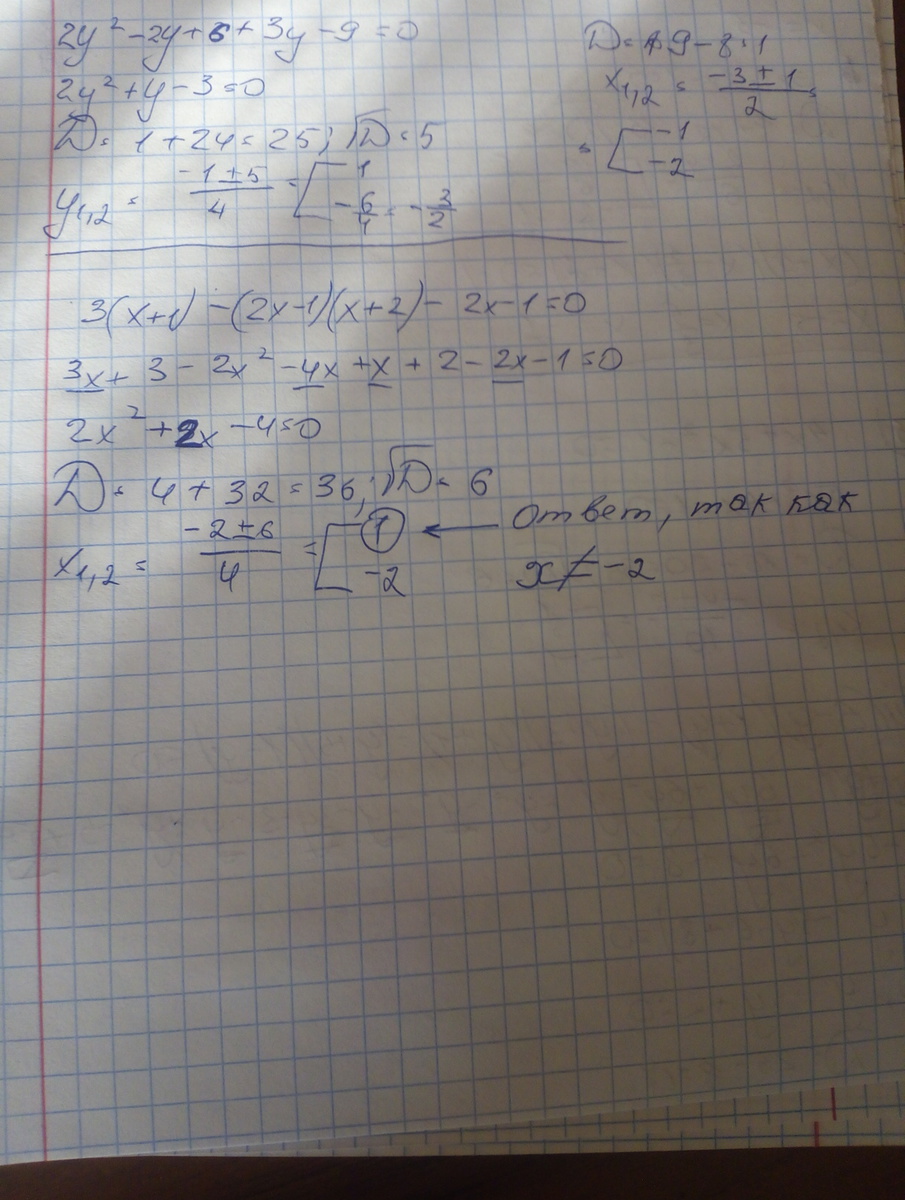 2y² - 2y + 6 + 3y - 9 = 0
2y² + y - 3 = 0
D = 1 + 24 = 25; √D = 5
y₁,₂ = (-1 ± 5)/4 = [1; -6/4 = -3/2
D = 9 - 8 = 1
x₁,₂ = (-3 ± 1)/2 =
= [-1; -2
3(x+1) - (2x-1)(x+2) - 2x - 1 = 0
3x + 3 - 2x² - 4x + x + 2 - 2x - 1 = 0
2x² + 2x - 4 = 0
D = 4 + 32 = 36; √D = 6
x₁,₂ = (-2 ± 6)/4 = [1; -2 ← Ответ, так как
x ≠ -2